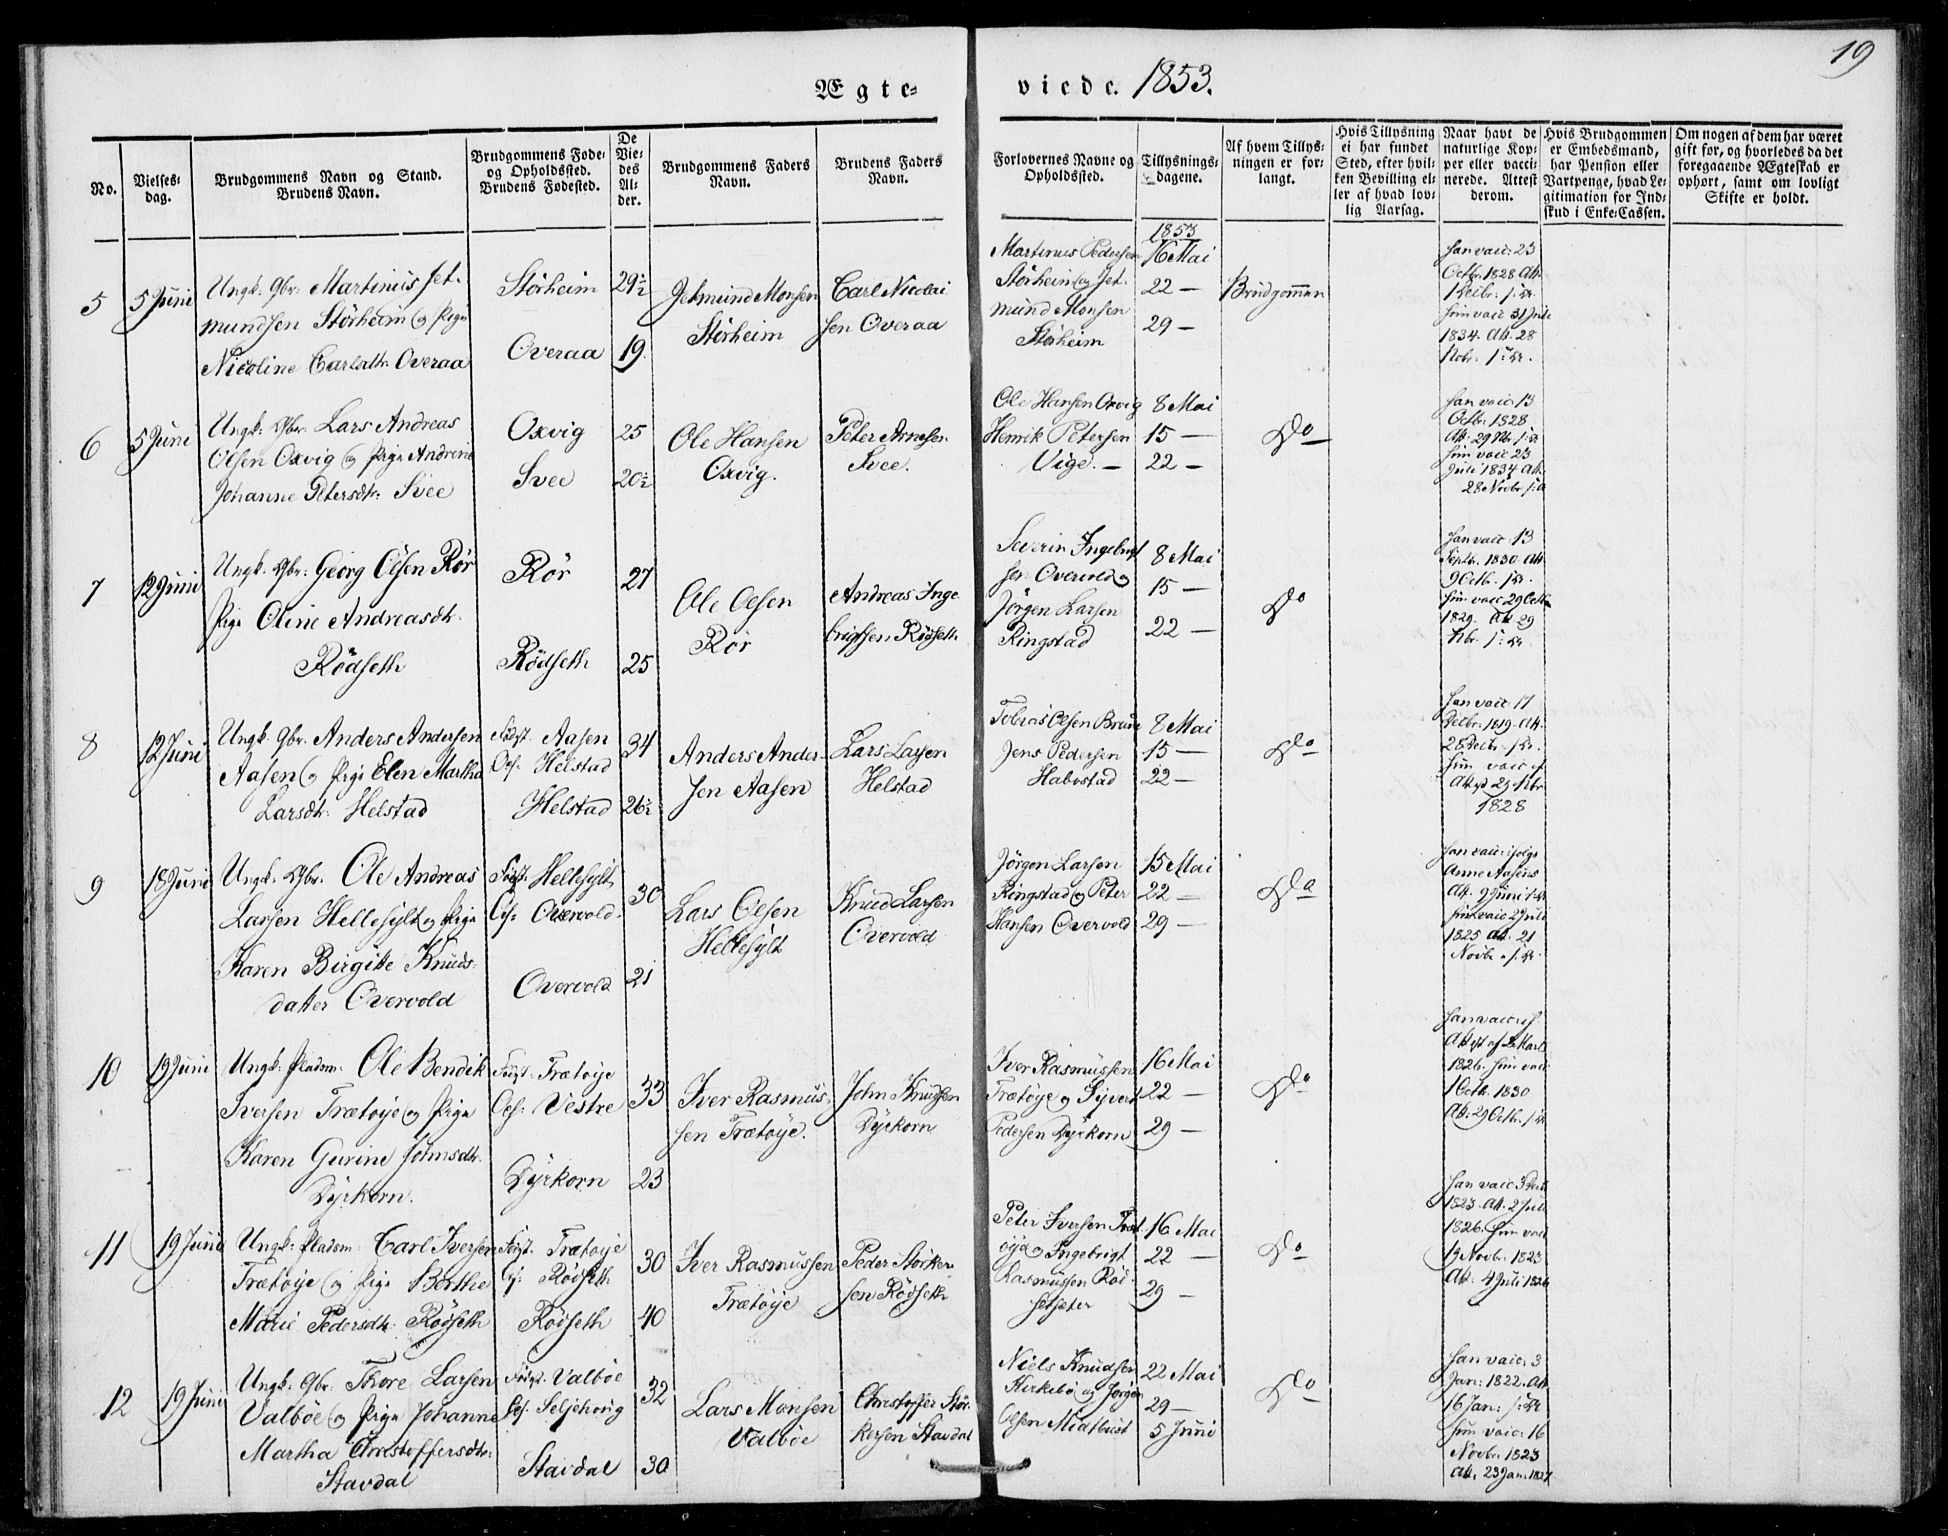 19
Ægte-
viede. 1853.
No.
Vielses-
dag.
Brudgommens Navn og Stand.
Brudens Navn.
Brudgommens Føde-
og Opholdssted.
Brudens Fødested.
De
Vie-
des
Al-
der.
Brudgommens Faders
Navn.
Brudens Faders
Navn.
Forlovernes Navne og
Opholdssted.
Tillysnings-
dagene.
Af hvem Tillys-
ningen er for-
langt.
Hvis Tillysning
ei har fundet
Sted, efter hvil-
ken Bevilling el-
ler af hvad lov-
lig Aarsag.
Naar havt de
naturlige Kop-
per eller vacci-
nerede. Attest
derom.
Hvis Brudgommen
er Embedsmand,
har Pension eller
Vartpenge, hvad Le-
gitimation for Ind-
skud i Enke-Cassen.
Om nogen af dem har været
gift før, og hvorledes da det
foregaaende Ægteskab er
ophørt, samt om lovligt
Skifte er holdt.
5
5 Juni
Ungk. Gbr. Martinus Jet-
mundsen Störheim og Pige
Nicoline Carlsdtr. Overaa
Störheim
Overaa
29½
19
Jetmund Monsen
Störheim
Carl Nicolai
sen Overaa
Martinus Pedersen
Störheim og Jet-
mund Monsen
Störheim
1853
16 Mai
22 —
29 —
Brudgommen
han vacc. 23
Octbr. 1828 Att.
hun vacc 31 Juli
1834. Att. 28
Nobr.
6
5 Juni
Ungk. Gbr. Lars Andreas
Olsen Oxvig og Pige Andrine
Johanne Petersdtr. Svee
Oxvig
Svee
25
20½
Ole Hansen
Oxvig.
Peter Arnesen
Svee.
Ole Hansen Oxvig
Henrik Petersen
Vige. —
8 Mai
15 —
22 —
Do
han vacc. 13
Octbr. 1828
Att. 29 Nbr.
hun vacc. 23
Juli 1834 Att.
28 Novbr.
7
12 Juni
Ungk. Gbr. Georg Olsen Rör
Pige Oline Andreasdtr.
Rödseth
Rör
Rödseth
27
25
Ole Olsen
Rör
Andreas Inge
brigtsen Rödseth
Severin Ingebrigt
sen Overvold og
Jörgen Larsen
Ringstad
8 Mai
15 —
22 —
Do
han vacc. 13
Septbr. 1830 Att.
9 Octb.
hun vacc 29 Octb
1829. Att 29
Nbr.
8
12 Juni
Ungk. Gbr. Anders Andersen
Aasen og Pige Elen Martha
Larsdtr. Helstad
Födest. Aasen
Ops. Helstad
Helstad
34
26½
Anders Ander-
sen Aasen
Lars Larsen
Helstad
Tobias Olsen Braue
Jens Pedersen
Habostad
8 Mai
15 —
22 —
Do
han vacc. 17
Decbr. 1819. Att.
28 Decbr.
hun vacc.
Att. 29 Nbr
1828
9
18 Juni
Ungk. Gbr. Ole Andreas
Larsen Hellesylt og Pige
Karen Birgitte Knuds-
datter Overvold
Födest. Hellesylt
Ops. Overvold
Overvold
30
21
Lars Olsen
Hellesylt
Knud Larsen
Overvold
Jörgen Larsen
Ringstad og Peter
Hansen Overvold
15 Mai
22 —
29 —
Do
han vacc. ifölge
Anne Aasens
Att. 9 Juni
hun vacc 2 Juli
1825 Att. 21
Novbr.
10
19 Juni
Ungk. Pladsm. Ole Bendik
Iversen Trætöye og Pige
Karen Gurine Johnsdtr.
Dyrkorn.
Födest. Trætöye
Ops. Vestre
Dyrkorn
33
23
Iver Rasmus-
sen Trætöye.
John Knudsen
Dyrkorn
Iver Rasmussen
Trætöye og Syvert
Pedersen Dyrkorn
16 Mai
22 —
29 —
Do
han vacc.
Att.
1826. hun vacc
1 Octb. 1830
Att. 29 Octb.
11
19 Juni
Ungk. Pladsm. Carl Iversen
Trætöye og Pige Berthe
Marie Pedersdtr. Rödseth
Födest. Trætöye
Ops. Rödseth
Rödseth
30
40
Iver Rasmussen
Trætöye
Peder Störker-
sen Rödseth
Peter Iversen Træt
öye og Ingebrigt
Rasmussen Röd-
setsæter
16 Mai
22 —
29 —
Do
han vacc.
1823. Att. 2 Juli
1826. hun vacc
19 Novbr. 1823
Att. 4 Juli 1826
12
19 Juni
Ungk. Gbr. Thore Larsen
Valböe og Pige Johanne
Martha Christoffersdtr.
Stavdal
Födest. Valböe
Ops. Seljehoug
Stavdal
32
30
Lars Monsen
Valböe
Christoffer Stör-
kersen Stavdal
Niels Knudsen
Kirkebö og Jörgen
Olsen Midtbust
22 Mai
29 —
5 Juni
Do
han vacc. 3
Jan: 1822. Att.
16 Jan:
hun vacc. 16
Novbr. 1823
Att. 23 Jan: 1827